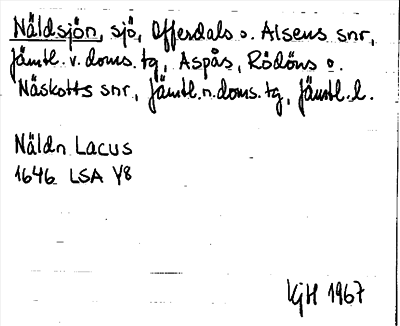 Näldsjön, sjö, Offerdals o. Alsens snr,
Jämtl. v. doms. tg, Aspås, Rödöns o.
Näskotts snr, Jämtl. n. doms. tg, Jämtl. l.
Näldn Lacus
1646 LSA Y8
KjH 1967